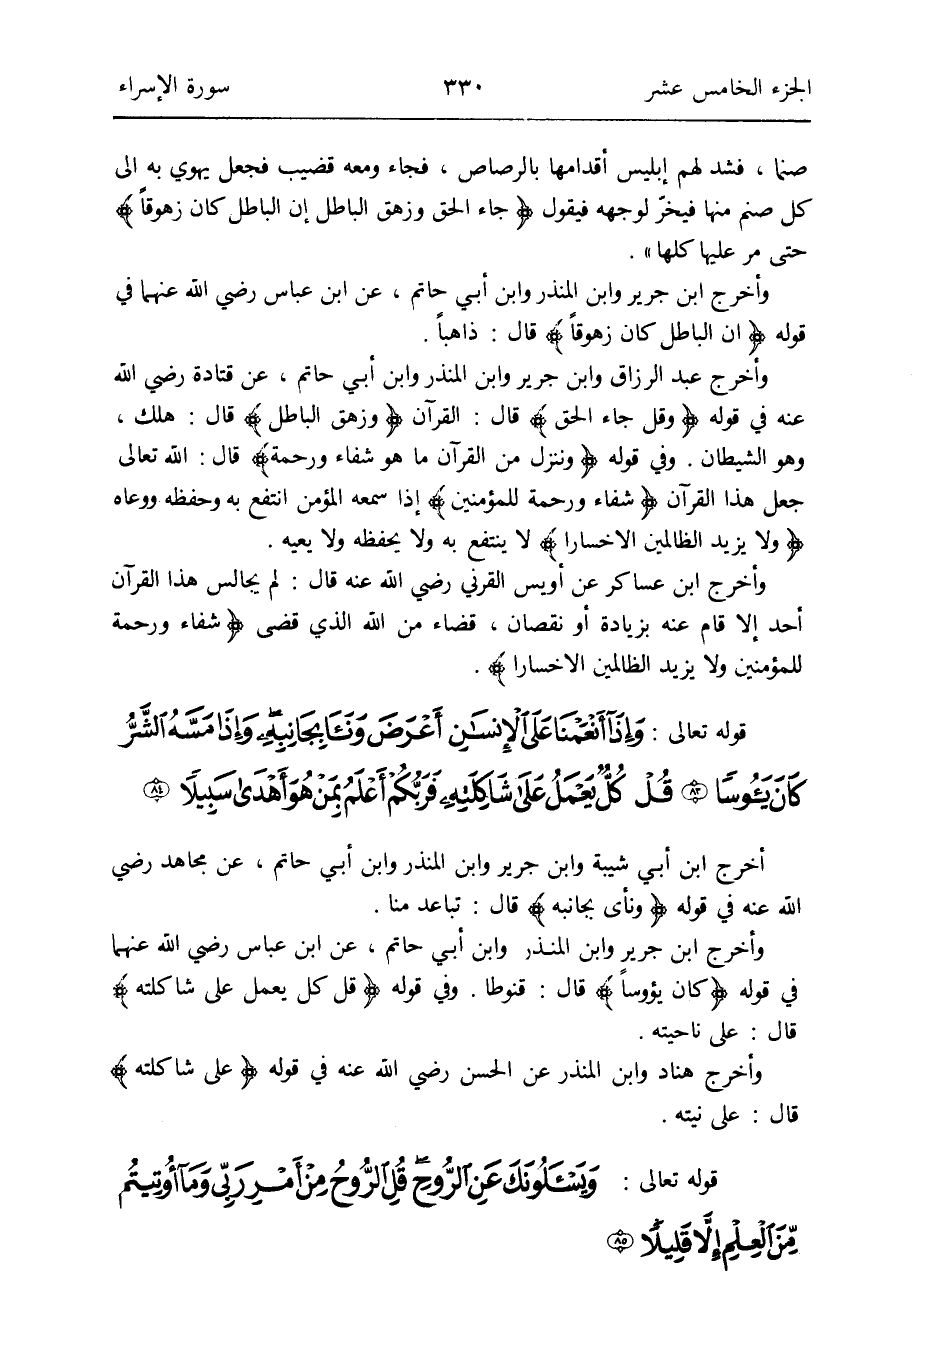 الجزء الخامس عشر ٣٣٠ سورة الإسراء
صنما ، فشد لهم إبليس أقدامها بالرصاص ، فجاء ومعه قضيب فجعل يهوي به الى
كل صنم منها فيخرّ لوجهه فيقول ﴿ جاء الحق وزهق الباطل إن الباطل كان زهوقاً ﴾
حتى مر عليها كلها » .
وأخرج ابن جرير وابن المنذر وابن أبي حاتم ، عن ابن عباس رضي الله عنهما في
قوله ﴿ ان الباطل كان زهوقاً ﴾ قال : ذاهباً .
وأخرج عبد الرزاق وابن جرير وابن المنذر وابن أبي حاتم ، عن قتادة رضي الله
عنه في قوله ﴿ وقل جاء الحق ﴾ قال : القرآن ﴿ وزهق الباطل ﴾ قال : هلك ،
وهو الشيطان . وفي قوله ﴿ وننزل من القرآن ما هو شفاء ورحمة﴾ قال : الله تعالى
جعل هذا القرآن ﴿ شفاء ورحمة للمؤمنين ﴾ إذا سمعه المؤمن انتفع به وحفظه ووعاه
﴿ ولا يزيد الظالمين الاخسارا ﴾ لا ينتفع به ولا يحفظه ولا يعيه .
وأخرج ابن عساكر عن أويس القرني رضي الله عنه قال : لم يجالس هذا القرآن
أحد إلا قام عنه بزيادة أو نقصان ، قضاء من الله الذي قضى ﴿ شفاء ورحمة
للمؤمنين ولا يزيد الظالمين الاخسارا ﴾ .
قوله تعالى : وَإِذَآ أَنْعَمْنَا عَلَى ٱلْإِنسَٰنِ أَعْرَضَ وَنَـَٔا بِجَانِبِهِۦ وَإِذَا مَسَّهُ ٱلشَّرُّ
كَانَ يَـُٔوسًا ٨٣ قُلْ كُلٌّ يَعْمَلُ عَلَىٰ شَاكِلَتِهِۦ فَرَبُّكُمْ أَعْلَمُ بِمَنْ هُوَ أَهْدَىٰ سَبِيلًا ٨٤
أخرج ابن أبي شيبة وابن جرير وابن المنذر وابن أبي حاتم ، عن مجاهد رضي
الله عنه في قوله ﴿ ونأى بجانبه ﴾ قال : تباعد منا .
وأخرج ابن جرير وابن المنذر وابن أبي حاتم ، عن ابن عباس رضي الله عنهما
في قوله ﴿كان يؤوساً ﴾ قال : قنوطا . وفي قوله ﴿ قل كل يعمل على شاكلته ﴾
قال : على ناحيته .
وأخرج هناد وابن المنذر عن الحسن رضي الله عنه في قوله ﴿ على شاكلته ﴾
قال : على نيته .
قوله تعالى : وَيَسْـَٔلُونَكَ عَنِ ٱلرُّوحِ ۖ قُلِ ٱلرُّوحُ مِنْ أَمْرِ رَبِّى وَمَآ أُوتِيتُم
مِّنَ ٱلْعِلْمِ إِلَّا قَلِيلًا ٨٥